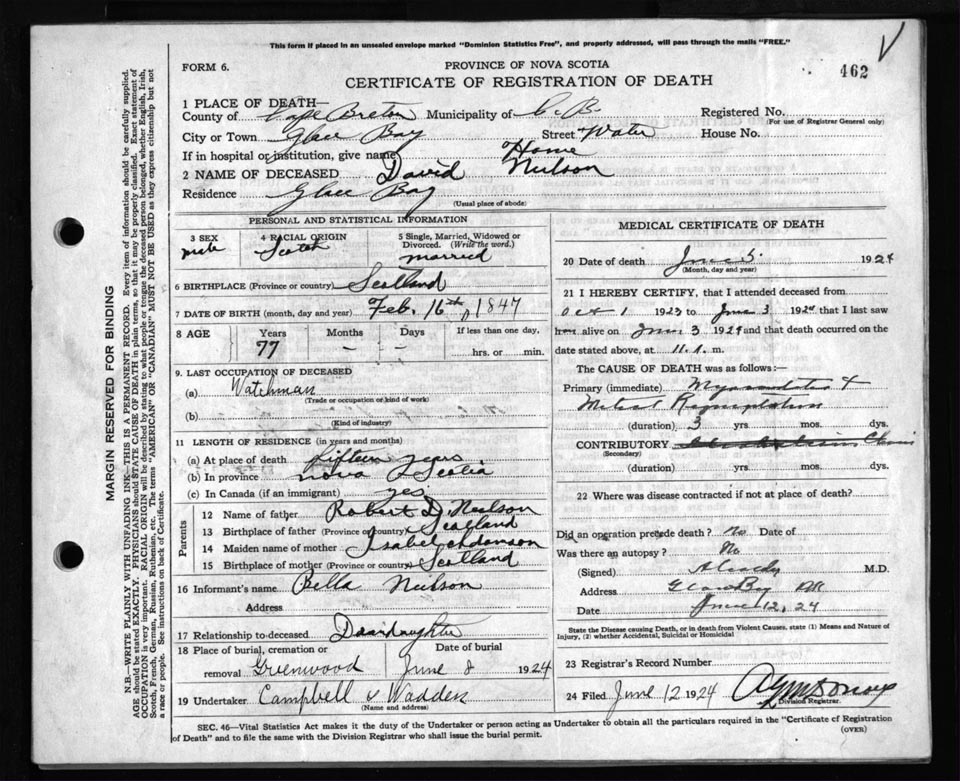 This form if placed in an unsealed envelope marked "Dominion Statistics Free", and properly addressed, will pass through the mails "FREE."
FORM 6.
PROVINCE OF NOVA SCOTIA
462
CERTIFICATE OF REGISTRATION OF DEATH
1 PLACE OF DEATH—
County of Cape Breton Municipality of C. B. Registered No.
(For use of Registrar General only)
City or Town Glace Bay Street Water House No.
If in hospital or institution, give name Home
2 NAME OF DECEASED David Neilson
Residence Glace Bay
(Usual place of abode)
PERSONAL AND STATISTICAL INFORMATION
3 SEX male
4 RACIAL ORIGIN Scotch
5 Single, Married, Widowed or Divorced. (Write the word.) married
6 BIRTHPLACE (Province or country) Scotland
7 DATE OF BIRTH (month, day and year) Feb. 16th, 1847
8 AGE Years Months Days If less than one day,
77 — — hrs. or min.
9. LAST OCCUPATION OF DECEASED
(a) Watchman
(Trade or occupation or kind of work)
(b)
(Kind of industry)
11 LENGTH OF RESIDENCE (in years and months)
(a) At place of death fifteen years
(b) In province nova Scotia
(c) In Canada (if an immigrant) yes
Parents
12 Name of father Robert D. Neilson
13 Birthplace of father (Province or country) Scotland
14 Maiden name of mother Isabel
15 Birthplace of mother (Province or country) Scotland
16 Informant's name Bella Neilson
Address
17 Relationship to deceased
18 Place of burial, cremation or removal Greenwood
Date of burial June 8 1924
19 Undertaker Campbell & Wadden
(Name and address)
MEDICAL CERTIFICATE OF DEATH
20 Date of death June 1924
(Month, day and year)
21 I HEREBY CERTIFY, that I attended deceased from
Oct 1 1923 to June 3 1924 that I last saw
him alive on June 3 1924 and that death occurred on
date stated above, at 11. m.
The CAUSE OF DEATH was as follows:—
Primary (immediate) Myocarditis &
Mitral Regurgitation
(duration) 3 yrs. mos. dys.
CONTRIBUTORY
(Secondary)
(duration) yrs. mos. dys.
22 Where was disease contracted if not at place of death?
Did an operation precede death? No Date of
Was there an autopsy? No
(Signed) M.D.
Address Glace Bay
Date June 12, 24
State the Disease causing Death, or in death from Violent Causes, state (1) Means and Nature of
Injury, (2) whether Accidental, Suicidal or Homicidal
23 Registrar's Record Number
24 Filed June 12 1924
Division Registrar.
SEC. 46—Vital Statistics Act makes it the duty of the Undertaker or person acting as Undertaker to obtain all the particulars required in the "Certificate of Registration
of Death" and to file the same with the Division Registrar who shall issue the burial permit.
(OVER)
MARGIN RESERVED FOR BINDING
N.B.—WRITE PLAINLY WITH UNFADING INK—THIS IS A PERMANENT RECORD. Every item of information should be carefully supplied.
AGE should be stated EXACTLY. PHYSICIANS should STATE CAUSE OF DEATH in plain terms, so that it may be properly classified. Exact statement of
OCCUPATION is very important. RACIAL ORIGIN will be described by stating to what people or tongue the deceased person belonged, whether English, Irish,
Scotch, French, German, Russian, Ruthenian, etc. The terms "AMERICAN" OR "CANADIAN" MUST NOT BE USED as they express citizenship but not
a race or people. See instructions on back of Certificate.